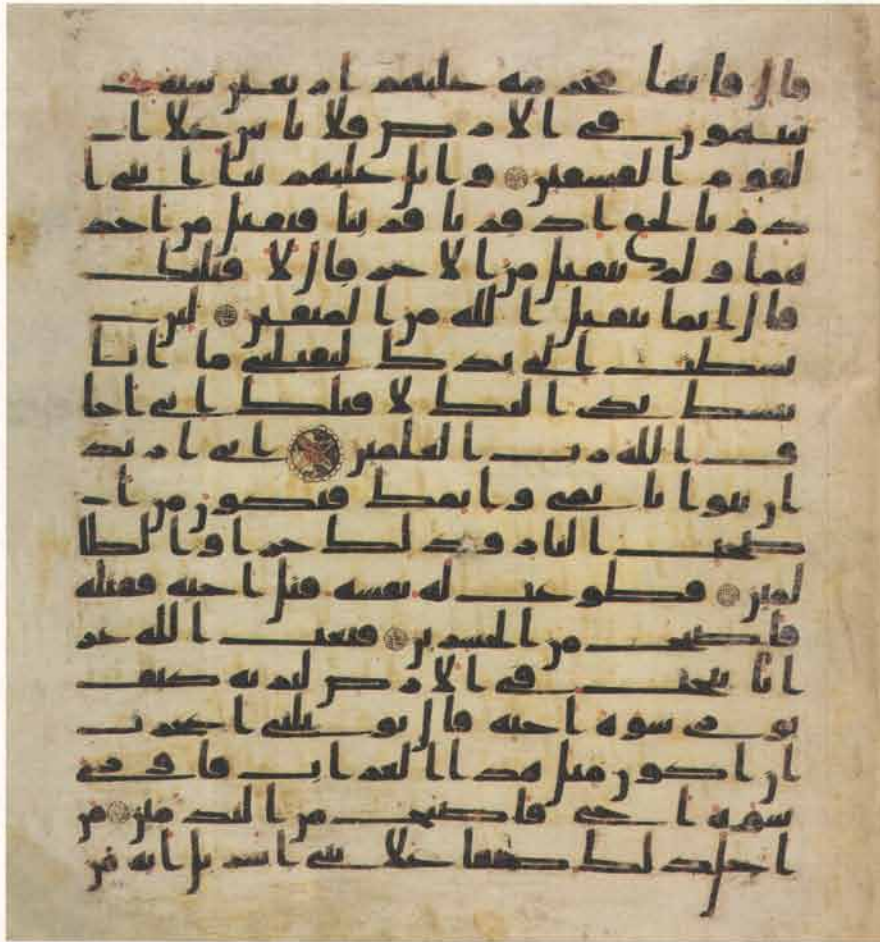 قال فانها محرمة عليهم اربعين سنة
يتيهون في الارض فلا تاس علا ا
لقوم الفسقين واتل عليهم نبا ابني ا
دم بالحق اذ قربا قربنا فتقبل من احد
هما ولم يتقبل من الاخر قال لاقتلنك
قال انما يتقبل الله من المتقين لين
بسطت الي يدك لتقتلني ما انا
ببسط يدي اليك لاقتلك اني اخا
ف الله رب العلمين اني اريد
ان تبوا باثمي واثمك فتكون من ا
صحب النار وذلك جزاوا الظا
لمين فطوعت له نفسه قتل اخيه فقتله
فاصبح من الخسرين فبعث الله غر
ابا يبحث في الارض ليريه كيف
يوري سوة اخيه قال يويلتي اعجزت
ان اكون مثل هذا الغراب فاوري
سوة اخي فاصبح من الندمين من
اجل ذلك كتبنا علا بني اسريل انه من